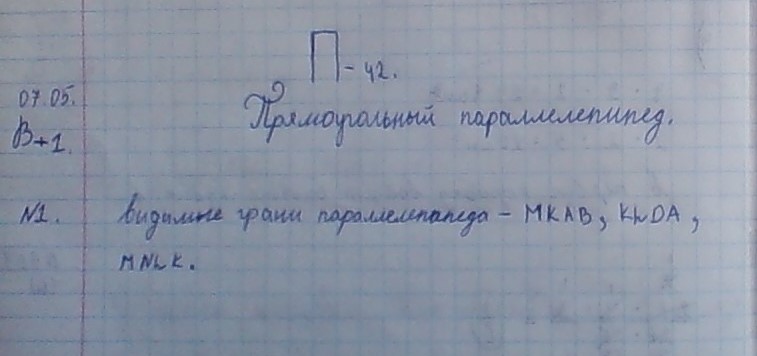 П-42.
07.05.
Прямоугольный параллелепипед.
В-1.
№1. Видимые грани параллелепипеда - MKAB, KLDA,
MNLK.